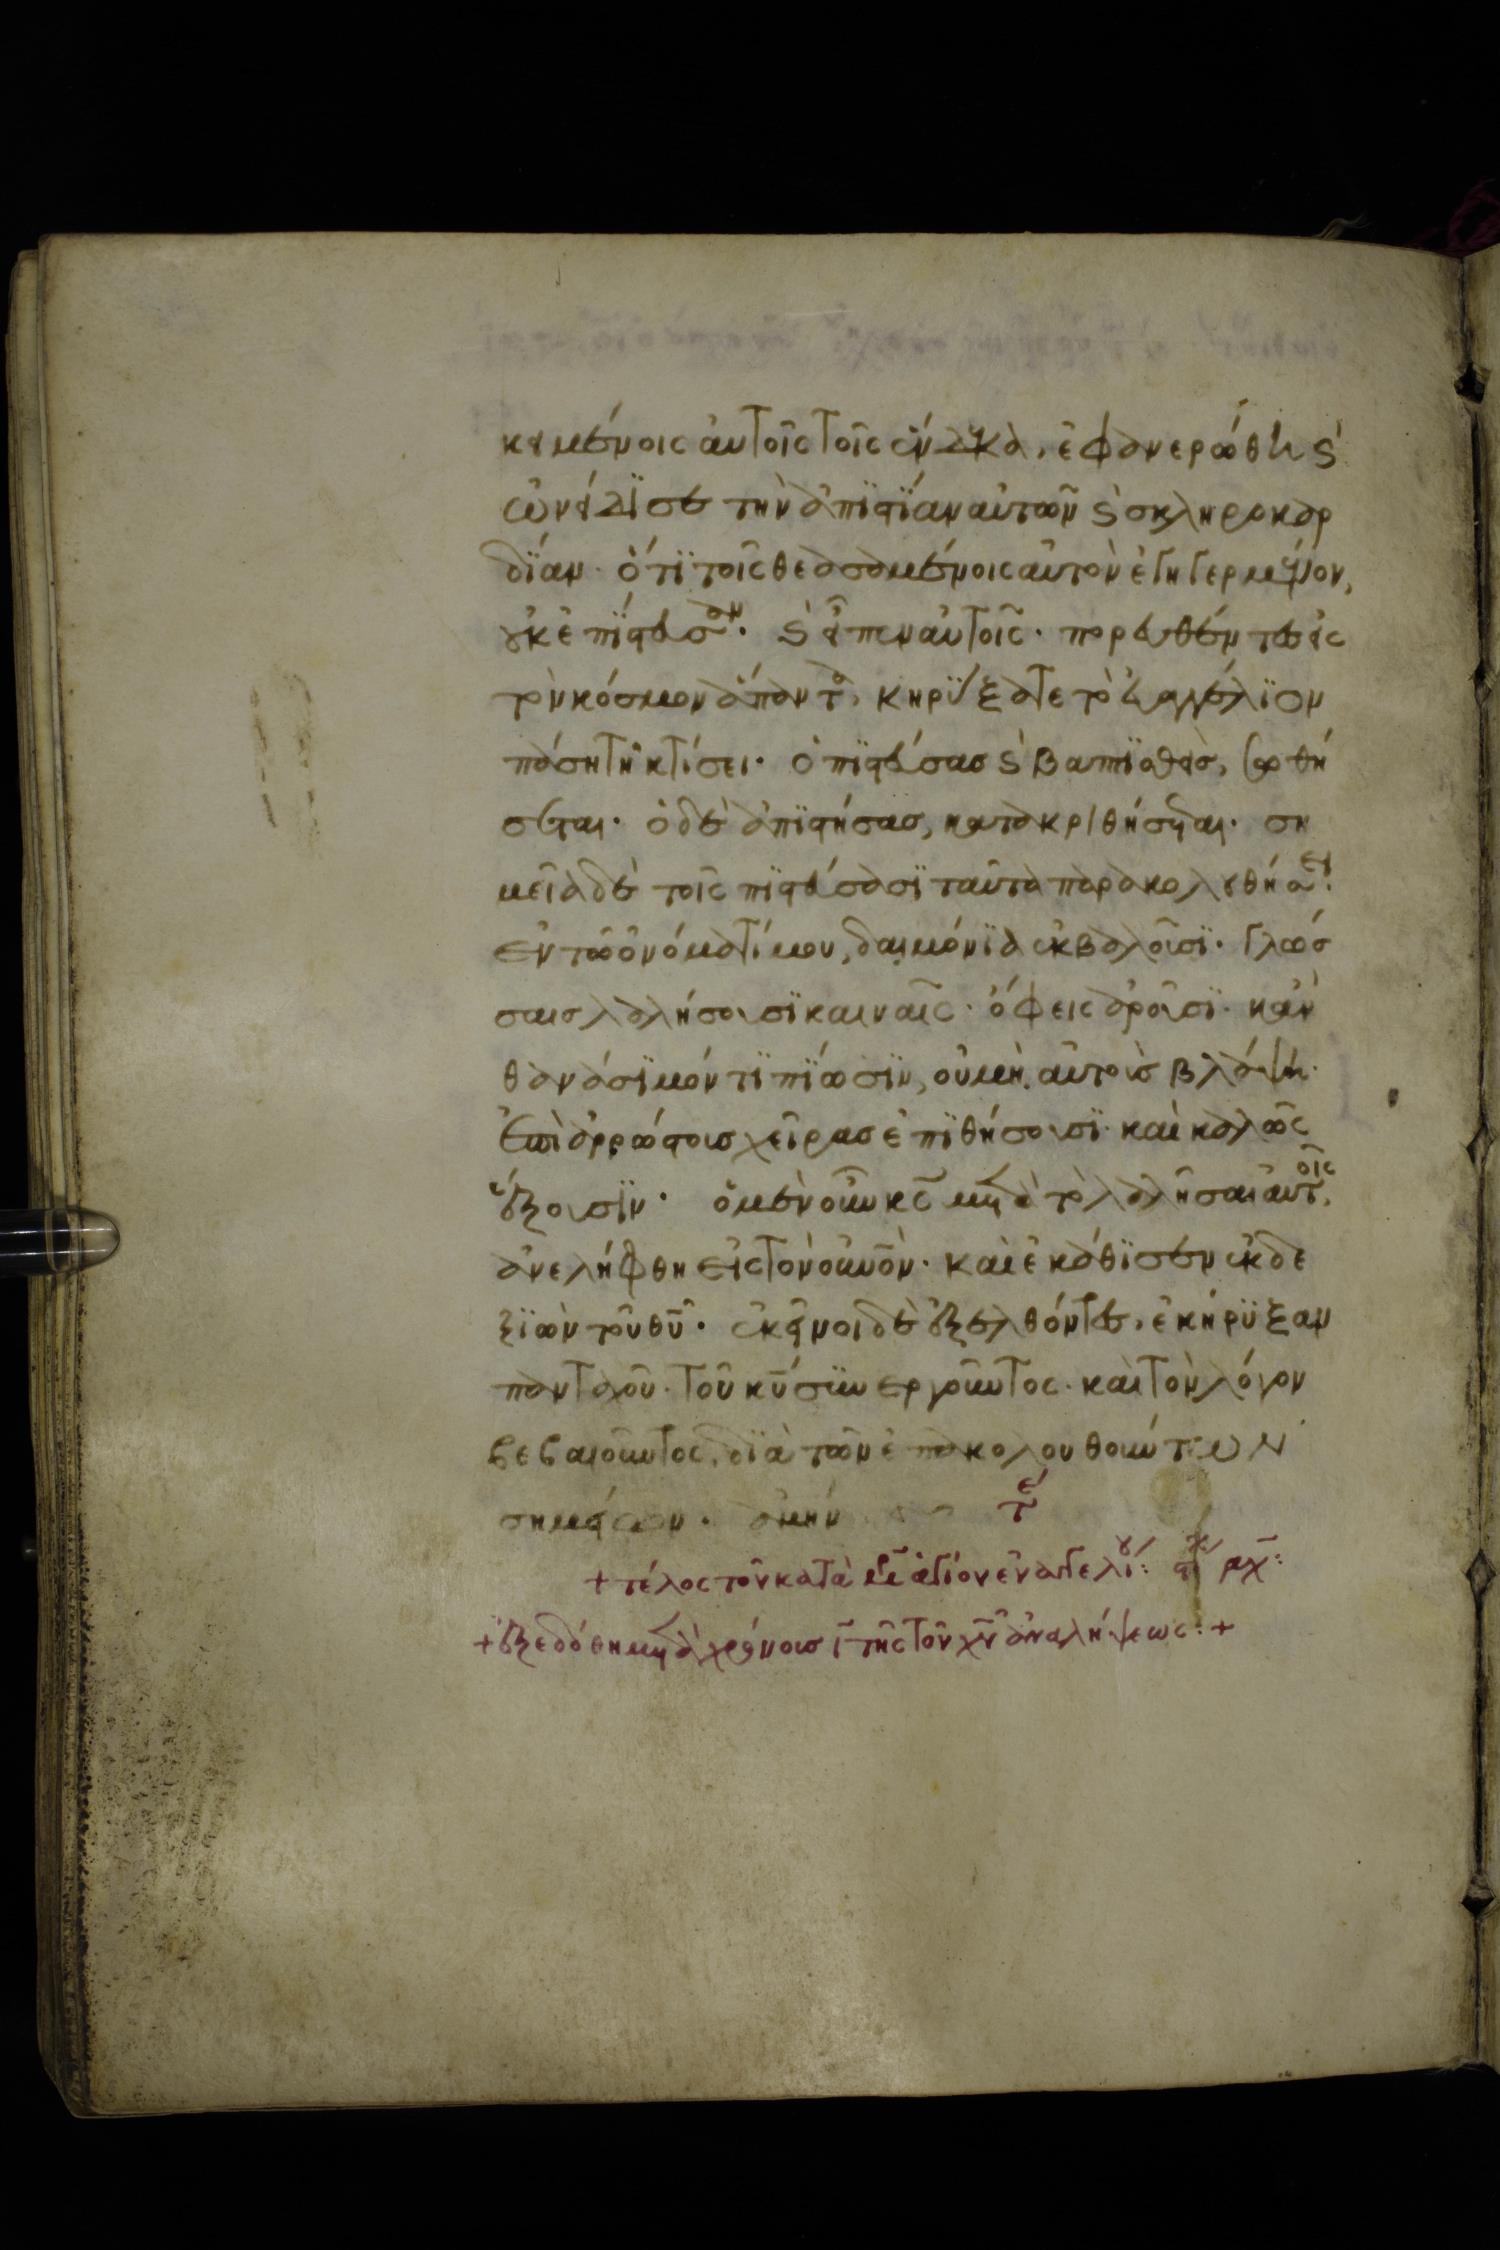 κειμένοις αὐτοῖς τοῖς ἕνδεκα, ἐφανερώθη ϛ̀
ὠνείδϊσε τὴν ἀπϊστΐαν αὐτῶν ϛ̀ σκληροκαρ
δΐαν· ὅτϊ τοῖς θεασαμένοις αὐτὸν ἐγηγερμένον,
οὐκ ἐπΐστευσαν· ϛ̀ εἶπεν αὐτοῖς· πορευθέντες εἰς
τὸν κόσμον ἅπαντα, κηρΰξατε τὸ εὐαγγέλϊον
πάσῃ τῇ κτίσει· ὁ πϊστεύσας ϛ̀ βαπτϊσθεὶς, σωθή
σεται· ὁ δὲ ἀπϊστήσας, κατακριθήσεται· ση
μεῖα δὲ τοῖς πϊστεύσασϊ ταῦτα παρακολουθήσει·
ἐν τῶ ὀνόματί μου, δαιμόνϊα ἐκβαλοῦσϊ· γλώσ
σαις λαλήσουσϊ καιναῖς· ὄφεις ἀροῦσϊ· κἂν
θανάσϊμόν τϊ πΐωσϊν, οὐ μὴ αὐτοὺς βλάψῃ·
ἐπὶ ἀρρώστοις χεῖρας ἐπϊθήσουσϊ· καὶ καλῶς
ἕξουσϊν· ὁ μὲν οὖν κ̅ς̅ μετὰ τὸ λαλῆσαι αὐτοῖς,
ἀνελήφθη εἰς τὸν οὐ̅ν̅ον· καὶ ἐκάθϊσεν ἐκ δε
ξϊῶν τοῦ θ̅υ̅· ἐκεῖνοι δὲ ἐξελθόντες, ἐκήρϋξαν
πανταχοῦ· τοῦ κ̅υ̅ σϋνεργοῦντος· καὶ τὸν λόγον
βεβαιοῦντος, δϊὰ τῶν ἐπακολουθούντων
σημείων· ἀμήν
τέ
+ τέλος τοῦ κατὰ ἅγιον εὐαγγελίου:
+ ἐξεδόθη μετὰ χρόνους ι̅ τῆς τοῦ χ̅υ̅ ἀναλήψεως: +